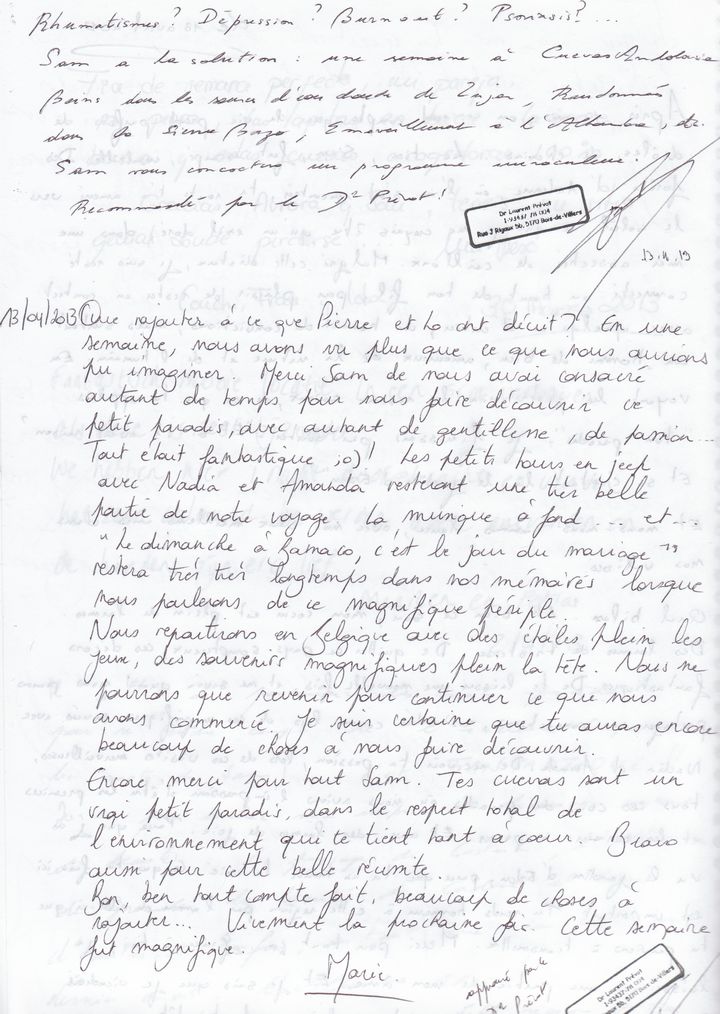 Rhumatismes? Dépression? Burn out? Psoriasis?...
Sam a la solution : une semaine à Cuevas Andalucia
Bains dans les sources d'eau chaude de Zujar, Randonnées
dans la Sierra Baza, Emerveillement à l'Alhambra, etc.
Sam vous concoctera un programme miraculeux!
Recommandé par le Dr Prévot!
Dr Laurent Prévot
1-93437-78 004
Rue J Rigaux 5b, 5170 Bois-de-Villers
13/04/2013 Que rajouter à ce que Pierre et Lo ont décrit? En une
semaine, nous avons vu plus que ce que nous aurions
pu imaginer. Merci Sam de nous avoir consacré
autant de temps pour nous faire découvrir ce
petit paradis, avec autant de gentillesse, de passion...
Tout était fantastique ;o)! Les petits tours en jeep
avec Nadia et Amanda resteront une très belle
partie de notre voyage. La musique à fond ... et ...
"Le dimanche à Bamaco, c'est le jour du mariage"
restera très très longtemps dans nos mémoires lorsque
nous parlerons de ce magnifique périple.
Nous repartirons en Belgique avec des étoiles plein les
yeux, des souvenirs magnifiques plein la tête. Nous ne
pourrons que revenir pour continuer ce que nous
avons commencé. Je suis certaine que tu auras encore
beaucoup de choses à nous faire découvrir.
Encore merci pour tout Sam. Tes cuevas sont un
vrai petit paradis, dans le respect total de
l'environnement qui te tient tant à coeur. Bravo
aussi pour cette belle réussite.
Bon, ben tout compte fait, beaucoup de choses à
rajouter... Vivement la prochaine fois. Cette semaine
fut magnifique.
Marie.
par le
Dr Prévot
Dr Laurent Prévot
5b, 5170 Bois-de-Villers